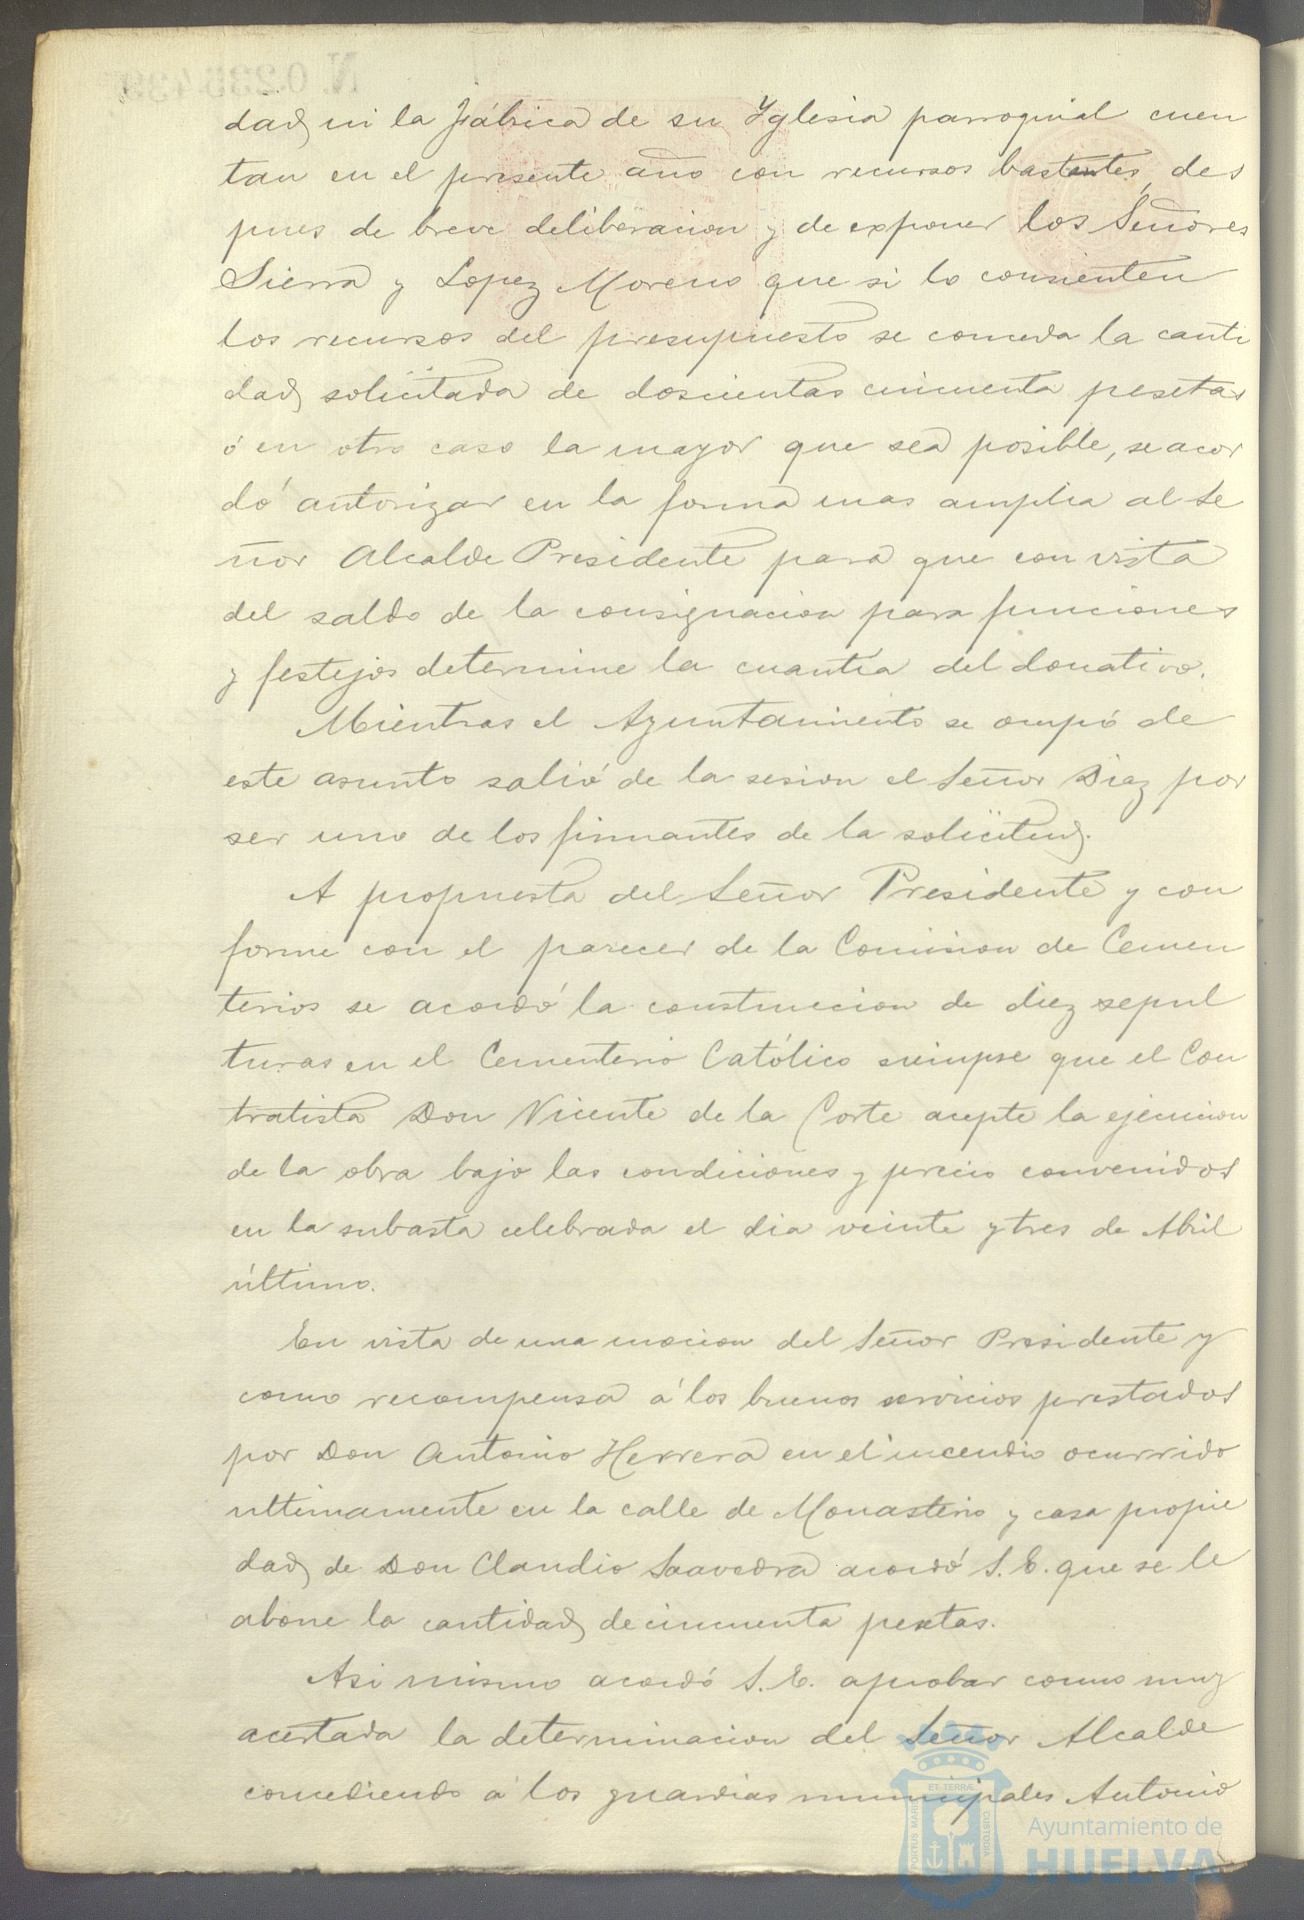 dad, ni la Fábrica de su Yglesia parroquial cuen
tan en el presente año con recursos bastantes, des
pues de breve deliberacion y de exponer los Señores
Sierra y Lopez Moreno que si lo consienten
los recursos del presupuesto se conceda la canti
dad solicitada de doscientas cincuenta pesetas
ó en otro caso la mayor que sea posible, se acor
dó autorizar en la forma mas amplia al Se
ñor Alcalde Presidente para que con vista
del saldo de la consignacion para funciones
y festejos determine la cuantía del donativo.
Mientras el Ayuntamiento se ocupó de
este asunto salió de la sesion el Señor Diaz por
ser uno de los firmantes de la solicitud.
A propuesta del Señor Presidente y con
forme con el parecer de la Comision de Cemen
terios se acordó la construccion de diez sepul
turas en el Cementerio Católico siempre que el Con
tratista Don Vicente de la Corte acepte la ejecucion
de la obra bajo las condiciones y precio convenidos
en la subasta celebrada el dia veinte y tres de Abril
último.
En vista de una mocion del Señor Presidente y
como recompensa á los buenos servicios prestados
por Don Antonio Herrera en el incendio ocurrido
ultimamente en la calle de Monasterio y casa propie
dad de Don Claudio Saavedra acordó S. E. que se le
abone la cantidad de cincuenta pesetas.
Asi mismo acordó S. E. aprobar como muy
acertada la determinacion del Señor Alcalde
concediendo á los guardias municipales Antonio
Ayuntamiento de
HUELVA